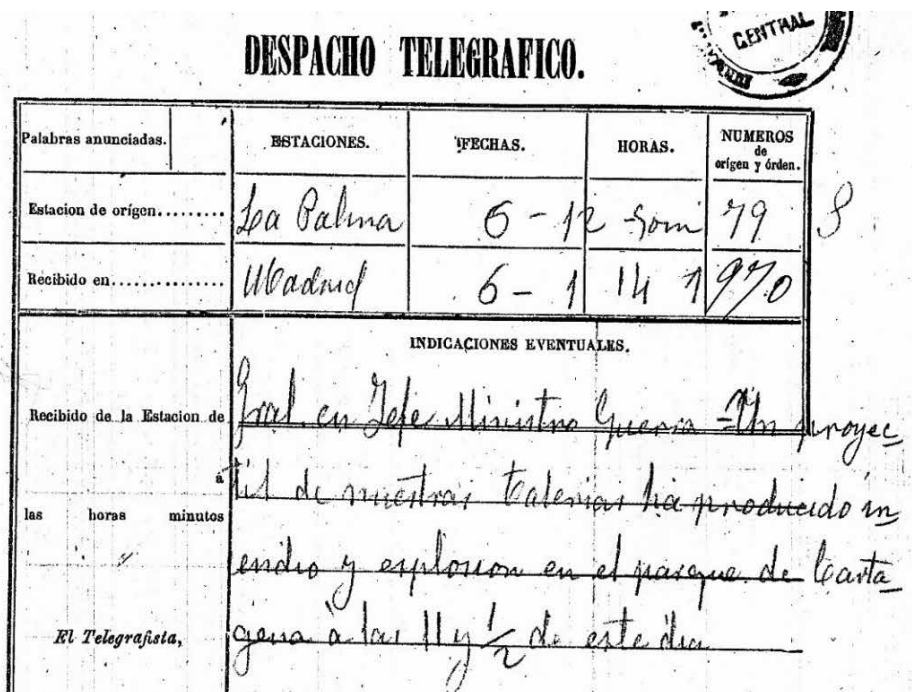 CENTRAL
DESPACHO TELEGRAFICO.
Palabras anunciadas.
ESTACIONES.
FECHAS.
HORAS.
NUMEROS
de
orígen y órden.
Estacion de orígen.........
La Palma
6 - 12
79
Recibido en...............
Madrid
6 - 1
14
970
INDICACIONES EVENTUALES.
Recibido de la Estacion de
a
las horas minutos
El Telegrafista,
Gral. en Jefe Ministro Guerra = Un proyec
til de nuestras baterias ha producido in
cendio y explosion en el parque de Carta
gena à las 11 y 1/2 de este dia